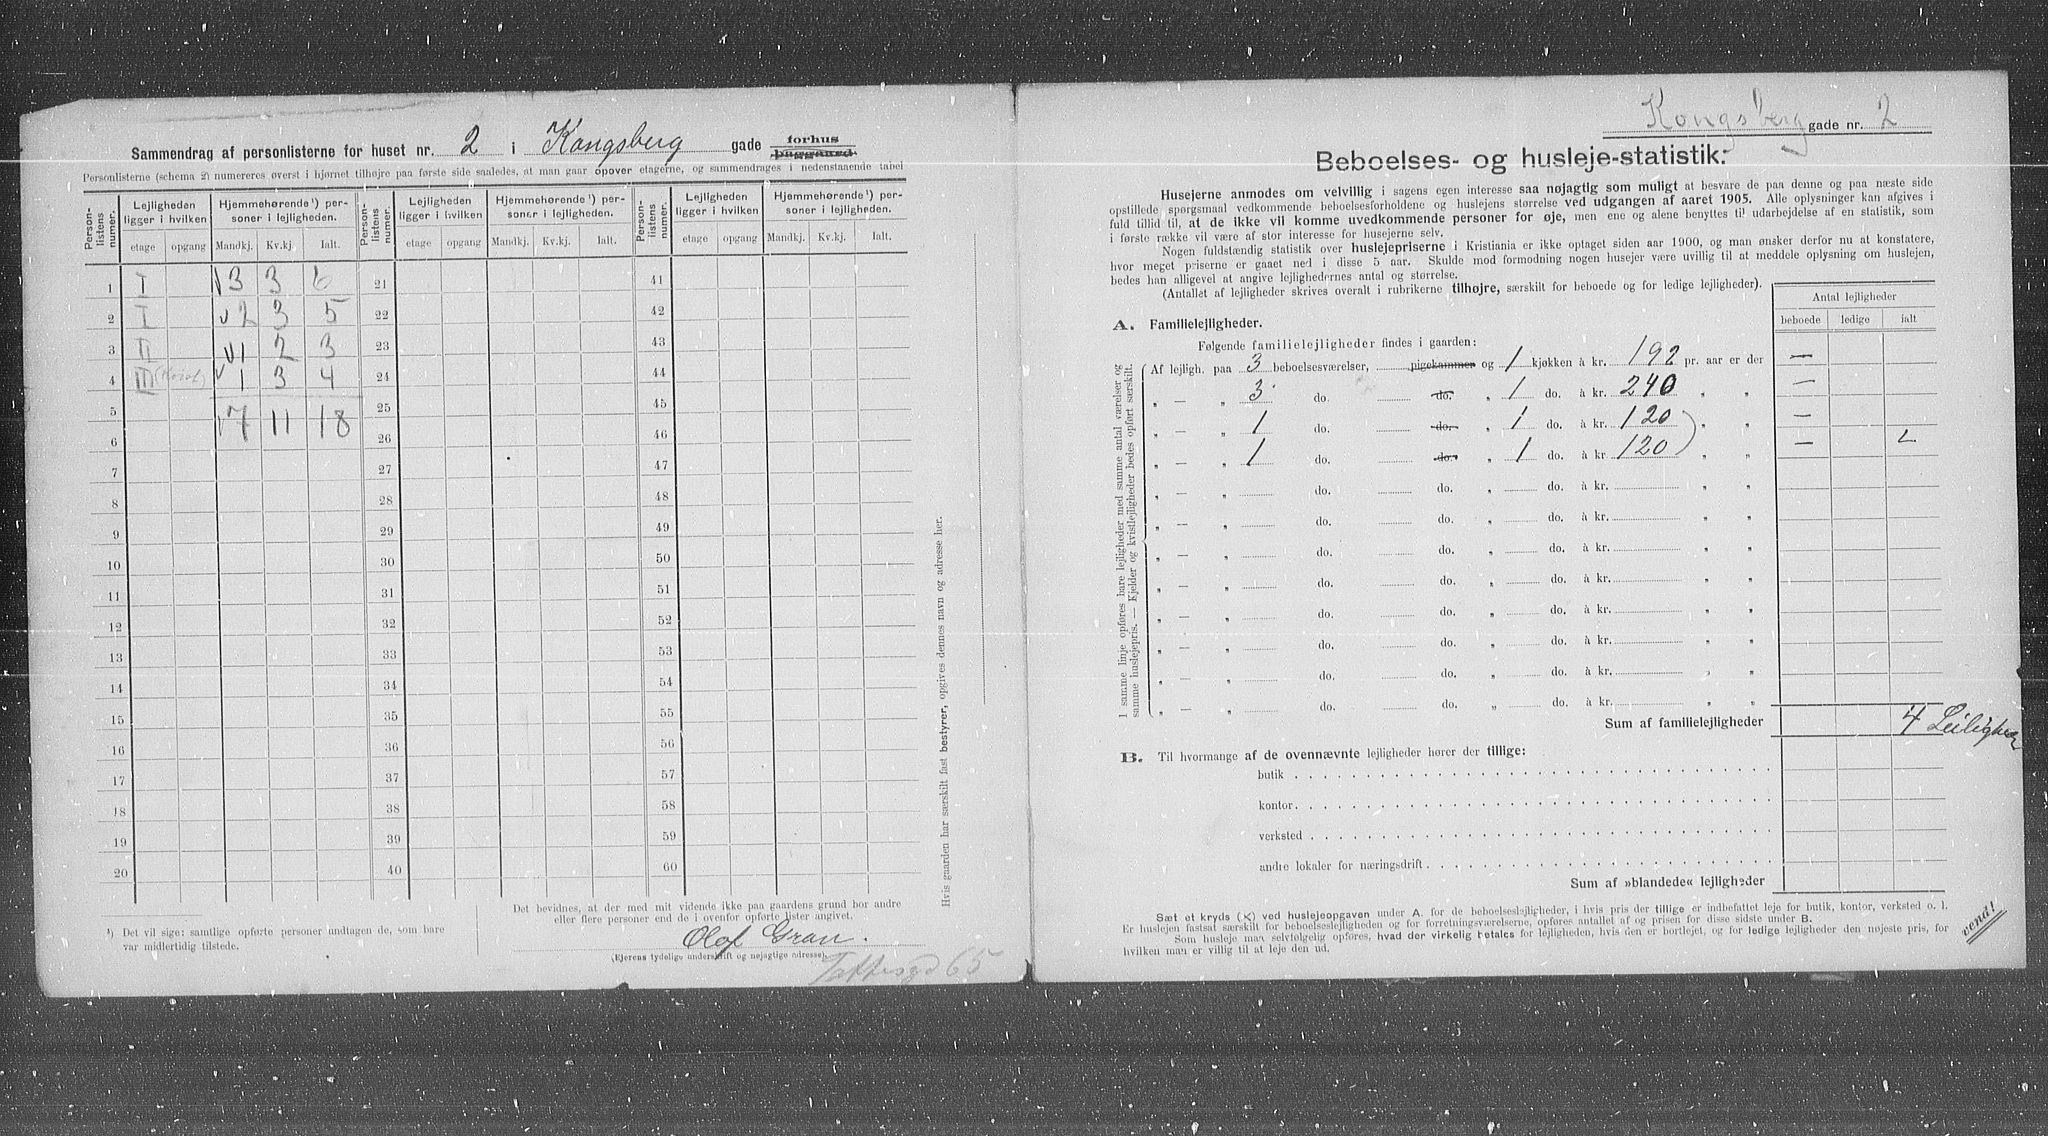 Sammendrag af personlisterne for huset nr. 2 i Kongsberg gade forhus baggaard.
Personlisterne (schema 2) numereres øverst i hjørnet tilhøjre paa første side saaledes, at man gaar opover etagerne, og sammendrages i nedenstaaende tabel
Person-listens numer. Lejligheden ligger i hvilken Hjemmehørende ¹) personer i lejligheden. Person-listens numer. Lejligheden ligger i hvilken Hjemmehørende ¹) personer i lejligheden. Person-listens numer. Lejligheden ligger i hvilken Hjemmehørende ¹) personer i lejligheden.
etage opgang Mandkj. Kv.kj. Ialt. etage opgang Mandkj. Kv.kj. Ialt. etage opgang Mandkj. Kv.kj. Ialt.
1 I 3 3 6 21 41
2 I 2 3 5 22 42
3 II 1 2 3 23 43
4 III (Kvist) 1 3 4 24 44
5 7 11 18 25 45
6 26 46
7 27 47
8 28 48
9 29 49
10 30 50
11 31 51
12 32 52
13 33 53
14 34 54
15 35 55
16 36 56
17 37 57
18 38 58
19 39 59
20 40 60
¹) Det vil sige: samtlige opførte personer undtagen de, som bare
var midlertidig tilstede.
Det bevidnes, at der med mit vidende ikke paa gaardens grund bor andre
eller flere personer end de i ovenfor opførte lister angivet.
Olof Gran.
(Ejerens tydelige underskrift og nøjagtige adresse).
65
Hvis gaarden har særskilt fast bestyrer, opgives dennes navn og adresse her.
Kongsberg gade nr. 2
Beboelses- og husleje-statistik:
Husejerne anmodes om velvillig i sagens egen interesse saa nøjagtig som muligt at besvare de paa denne og paa næste side
opstillede spørgsmaal vedkommende beboelsesforholdene og huslejens størrelse ved udgangen af aaret 1905. Alle oplysninger kan afgives i
fuld tillid til, at de ikke vil komme uvedkommende personer for øje, men ene og alene benyttes til udarbejdelse af en statistik, som
i første række vil være af stor interesse for husejerne selv.
Nogen fuldstændig statistik over huslejepriserne i Kristiania er ikke optaget siden aar 1900, og man ønsker derfor nu at konstatere,
hvor meget priserne er gaaet ned i disse 5 aar. Skulde mod formodning nogen husejer være uvillig til at meddele oplysning om huslejen,
bedes han alligevel at angive lejlighedernes antal og størrelse.
(Antallet af lejligheder skrives overalt i rubrikerne tilhøjre, særskilt for beboede og for ledige lejligheder).
Antal lejligheder
beboede ledige ialt
A. Familielejligheder.
Følgende familielejligheder findes i gaarden:
Af lejligh. paa 3 beboelsesværelser, pigekammer og 1 kjøkken à kr. 192 pr. aar er der —
„ — „ 3 do. do. „ 1 do. à kr. 240 „ „ —
„ — „ 1 do. do. „ 1 do. à kr. 120 „ „ —
„ — „ 1 do. do. „ 1 do. à kr. 120 „ „ —
„ — „ do. do. „ do. à kr. „ „
„ — „ do. do. „ do. à kr. „ „
„ — „ do. do. „ do. à kr. „ „
„ — „ do. do. „ do. à kr. „ „
„ — „ do. do. „ do. à kr. „ „
„ — „ do. do. „ do. à kr. „ „
„ — „ do. do. „ do. à kr. „ „
„ — „ do. do. „ do. à kr. „ „
I samme linje opføres bare lejligheder med samme antal værelser og
samme huslejepris. — Kjelder og kvistlejligheder bedes opført særskilt.
Sum af familielejligheder 4
B. Til hvormange af de ovennævnte lejligheder hører der tillige:
butik
kontor
verksted
andre lokaler for næringsdrift
Sum af »blandede« lejligheder
Sæt et kryds (×) ved huslejeopgaven under A. for de beboelseslejligheder, i hvis pris der tillige er indbefattet leje for butik, kontor, verksted o. l.
Er huslejen fastsat særskilt for beboelseslejligheden og for forretningsværelserne, opføres antallet af og prisen for disse sidste under B.
Som husleje maa selvfølgelig opføres, hvad der virkelig betales for lejligheden, hvis den er bortlejet, og for ledige lejligheder den nøjeste pris, for
hvilken man er villig til at leje den ud.
vend!